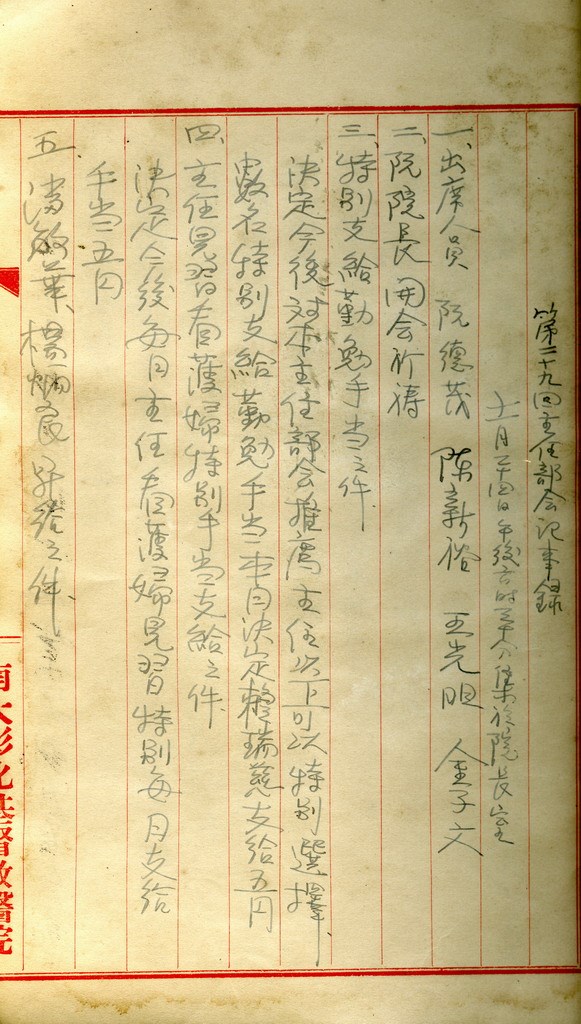 第二十九回主任部会記事錄
十一月二十四日午後六時三十分集於院長室
一、出席人員 阮德茂 陳新裕 王光明 金子文
二、阮院長開会祈禱
三、特別支給勤勉手当之件
決定今後对本主任部会推薦主任以下可以特別選擇
數名特別支給勤勉手当本月決定賴瑞慈支給五円
四、主任見習看護婦特別手当支給之件
決定今後每月主任看護婦見習特別每月支給
手当五円
五、潘敏華、楊炳良昇給之件
彰化基督教醫院